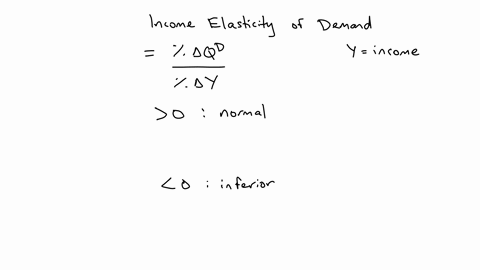 Income Elasticity of Demand
= %ΔQᴰ / %ΔY
Y = income
>0 : normal
<0 : inferior